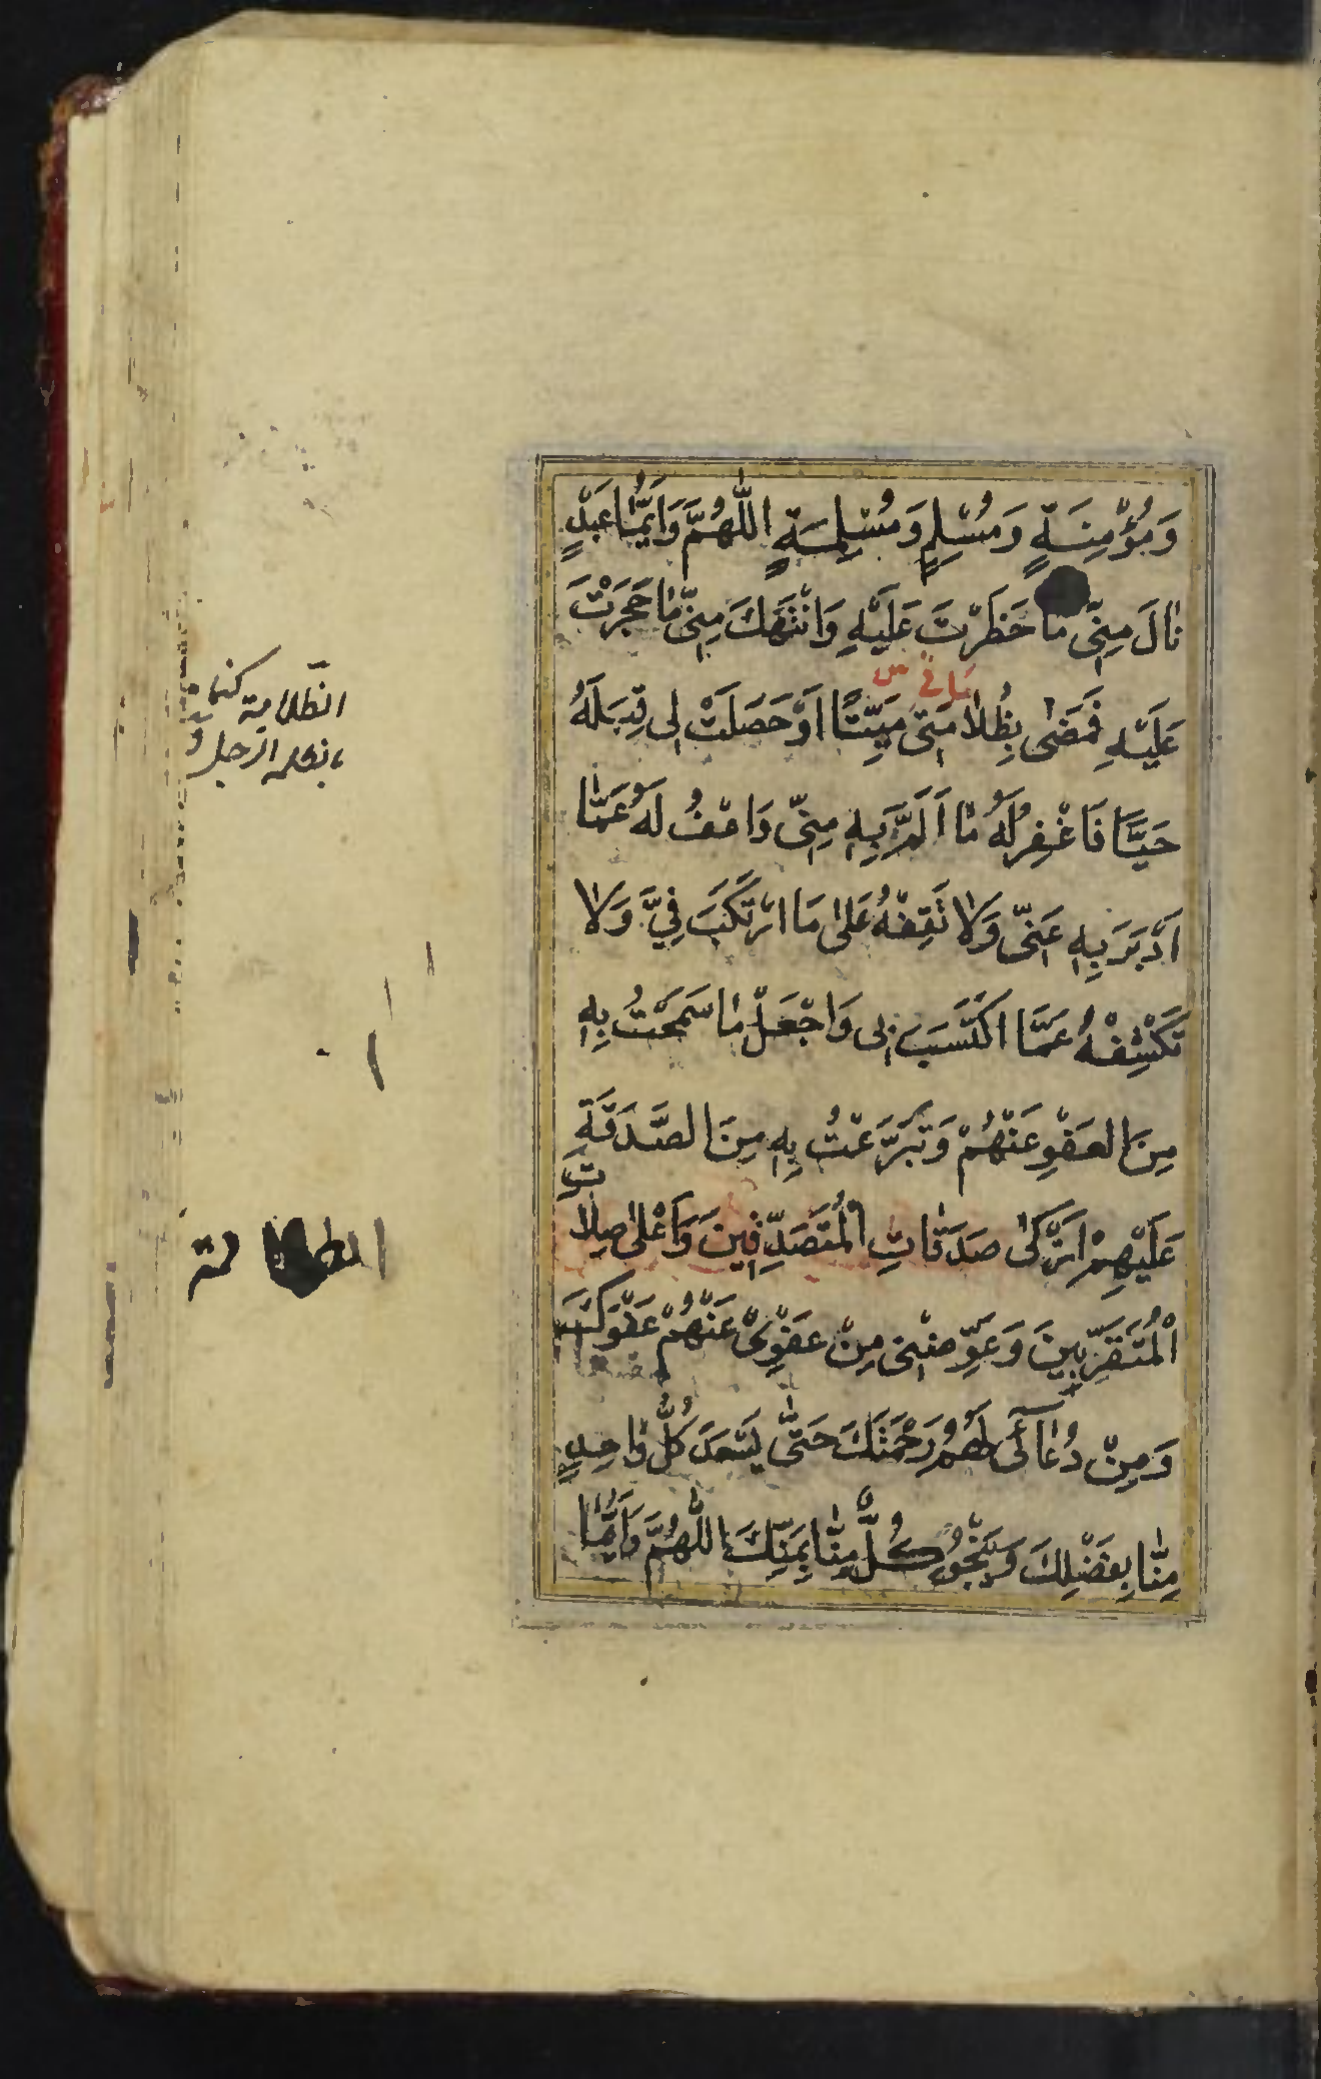 وَمُؤْمِنَةٍ وَمُسْلِمٍ وَمُسْلِمَةٍ اللَّهُمَّ وَاَيُّمَا عَبْدٍ
نٰالَ مِنّى مٰا حَظَرْتَ عَلَيْهِ وَانْتَهَكَ مِنّى مٰا حَجَرْتَ
عَلَيْهِ فَمَضٰى بِظُلاٰمَتى مَيِّتًا اَوْ حَصَلَتْ لى قِبَلَهُ
حَيًّا فَاغْفِرْلَهُ مٰا اَلَمَّ بِهِ مِنّى وَاعْفُ لَهُ عَمّٰا
اَدْبَرَ بِهِ عَنّى وَلاٰ تَقِفْهُ عَلىٰ مَا ارْتَكَبَ فِىَّ وَلاٰ
تَكْشِفْهُ عَمَّا اكْتَسَبَ بى وَاجْعَلْ مٰا سَمَحْتُ بِهِ
مِنَ العَفْوِ عَنْهُمْ وَتَبَرَّعْتُ بِهِ مِنَ الصَّدَقَةِ
عَلَيْهِمْ اَزْكىٰ صَدَقٰاتِ الْمُتَصَدِّقينَ وَاَعْلىٰ صِلاٰت
الْمُتَقَرِّبينَ وَعَوِّضْنى مِنْ عَفْوِىْ عَنْهُمْ عَفْوَكَ
وَمِنْ دُعٰآئى لَهُمْ رَحْمَتَكَ حَتّٰى يَسْعَدَ كُلُّ وٰاحِدٍ
مِنّٰا بِفَضْلِكَ وَيَنْجُوَ كُلٌّ مِنّٰا بِمَنِّكَ اللّٰهُمَّ وَاَيُّمٰا
الظّلامة
الرجل